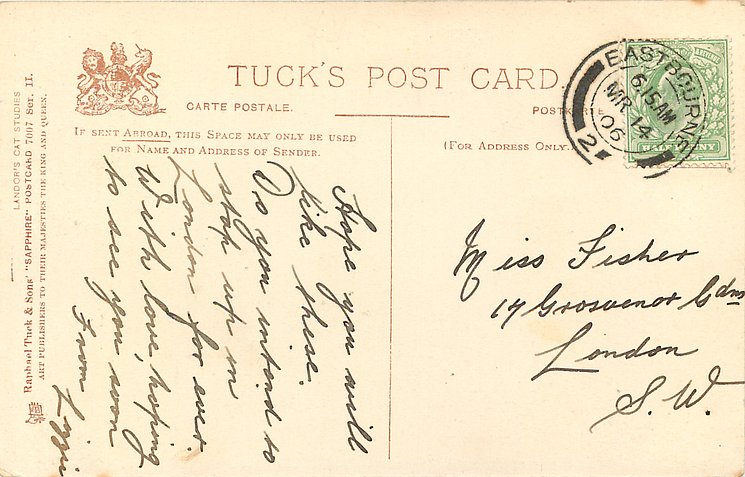 TUCK'S POST CARD.
CARTE POSTALE.
POSTKARTE
IF SENT ABROAD, THIS SPACE MAY ONLY BE USED
FOR NAME AND ADDRESS OF SENDER.
(FOR ADDRESS ONLY.)
LANDOR'S CAT STUDIES
Raphael Tuck & Sons' "SAPPHIRE" POSTCARD 7007 Ser. II.
ART PUBLISHERS TO THEIR MAJESTIES THE KING AND QUEEN.
Hope you will
like these.
Do you intend to
stop up in
London for ever.
With love, hoping
to see you soon
From Lizzie
EASTBOURNE
6.15AM
MR 14
06
2
HALF PENNY
Miss Fisher
17 Grosvenor Gdns
London
S.W.